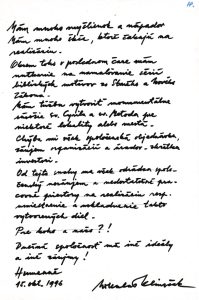 10.
Mám mnoho myšlienok a nápadov.
Mám mnoho skíc, ktoré čakajú na
realizáciu.
Okrem toho v poslednom čase mám
nutkanie na namaľovanie sérií
biblických motívov zo Starého a Nového
Zákona.
Mám túžbu vytvoriť monumentálne
súsošie sv. Cyrila a sv. Metoda pre
niektoré lokality alebo mestá.
Chýba mi však spoločenská objednávka,
záujem organizácií a úradov, skrátka
investori.
Od tejto snahy ma však odrádza spolo-
čenský nezáujem, a nedostatočné pra-
covné priestory na realizáciu resp.
umiestnenie a uskladnenie takto
vytvorených diel.
Pre koho a načo?!
Dnešná spoločnosť má iné ideály
a iné záujmy!
Humenné
15. okt. 1996